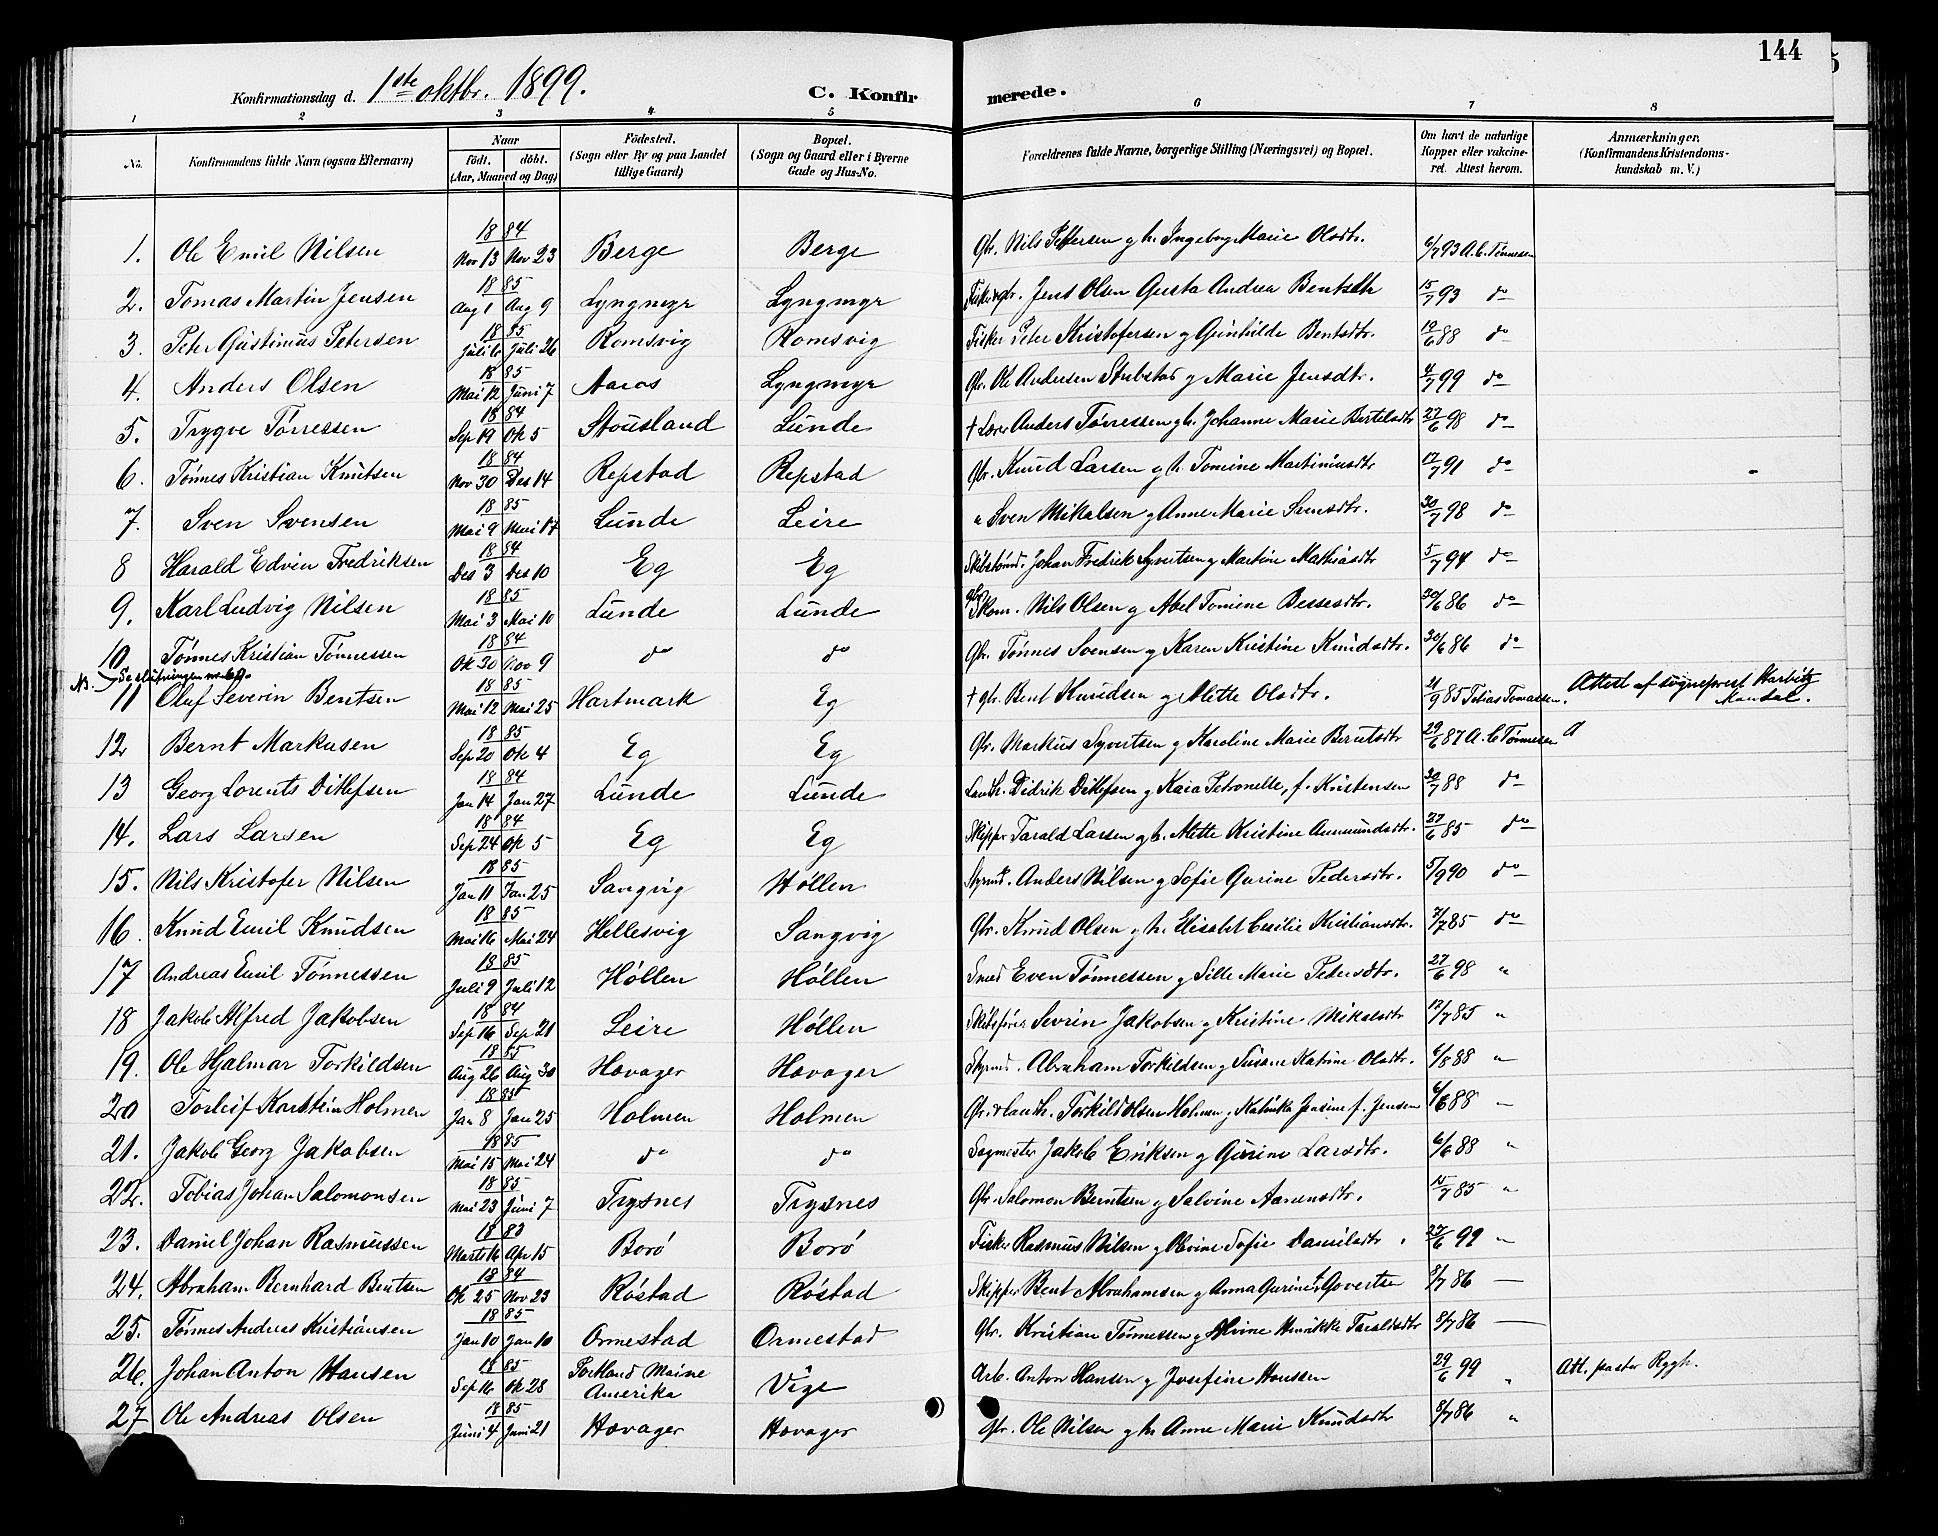 144
Konfirmationsdag d. 1ste oktbr. 1899. C. Konfirmerede.
1 2 3 4 5 6 7 8
No. Konfirmandens fulde Navn (ogsaa Efternavn) Naar födt. döbt. (Aar, Maaned og Dag) Födested. (Sogn eller By og paa Landet tillige Gaard) Bopæl. (Sogn og Gaard eller i Byerne Gade og Hus-No. Forældrenes fulde Navne, borgerlige Stilling (Næringsvei) og Bopæl. Om havt de naturlige Kopper eller vakcineret. Attest herom. Anmærkninger. (Konfirmandens Kristendomskundskab m. V.)
1. Ole Emil Nilsen 1884 Nov 13 Nov 23 Berge Berge Gbr. Nils Pettersen g h. Ingeborg Marie Olsdtr. 6/7 93 A. C. Tönnesen
2. Tomas Martin Jensen 1885 Aug 1 Aug 9 Lyngmyr Lyngmyr Jens Olsen Gusta Andrea Bentsdtr 15/7 93 do
3. Peter Gustinius Petersen 1885 Juli 6 Juli 26 Romsvig Romsvig Fisker Peter Kristofersen g Gunhilde Bentsdtr. 19/6 88 do
4. Anders Olsen 1885 Mai 12 Juni 7 Aaros Lyngmyr Gbr. Ole Andersen Stubstad g Marie Jensdtr. 4/7 99 do
5. Trygve Tönnessen 1884 Sep 19 Ok 5 Stousland Lunde † Lærer Anders Tönnessen g h. Johanne Marie Bertelsdtr 27/6 98 do
6. Tönnes Kristian Knutsen 1884 Nov 30 Des 14 Repstad Repstad Gbr. Knud Larsen g h. Tomine Martiniusdtr 17/7 91 do
7. Sven Svensen 1885 Mai 9 Mai 17 Lunde Leire " Sven Mikalsen g Anne Marie Svensdtr. 30/7 98 do
8 Harald Edvin Fredriksen 1884 Des 3 Des 10 Eg Eg Johan Fredrik Syvertsen g Martine Mathiasdtr 5/7 94 do
9. Karl Ludvig Nilsen 1885 Mai 3 Mai 10 Lunde Lunde Skom. Nils Olsen g Abel Tomine Bessesdtr. 30/6 86 do
10 Tönnes Kristian Tönnessen 1884 Ok 30 Nov 9 do do Gbr. Tönnes Svensen g Karen Kristine Knudsdtr. 30/6 86 do
NB. Se slutningen
11 Oluf Severin Bentsen 1885 Mai 12 Mai 25 Hartmark Eg † gbr. Bent Knudsen g Mette Olsdtr. 21/9 85 Tobias Tomassen. Attest af sogneprest Harbitz Mandal.
12 Bernt Markusen 1885 Sep 20 Ok 4 Eg Eg Gbr. Markus Syvertsen g Karoline Marie Berntsdtr 29/6 87 A. C. Tönnesen
13 Georg Lorents Ditlefsen 1884 Jan 14 Jan 27 Lunde Lunde Landh. Didrik Ditlefsen g Kaia Petronelle, f. Kristensen 30/7 88 do
14. Lars Larsen 1884 Sep 24 Ok 5 Eg Eg Skipper Tarald Larsen g h. Mette Kristine Aanmundsdtr. 27/6 85 do
15. Nils Kristofer Nilsen 1885 Jan 11 Jan 25 Sangvig Höllen Styrmd. Anders Nilsen g Sofie Gurine Pedersdtr. 5/9 90 do
16. Knud Emil Knudsen 1885 Mai 16 Mai 24 Hellesvig Sangvig Gbr. Knud Olsen g h. Elisabet Cecilie Kristiansdtr. 7/7 85 do
17 Andreas Emil Tönnessen 1885 Juli 9 Juli 12 Höllen Höllen Smed Even Tönnessen g Sille Marie Pedersdtr. 27/6 98 "
18 Jakob Alfred Jakobsen 1884 Sep 16 Sep 21 Leire Höllen Skibsförer Sevrin Jakobsen g Kristine Mikalsdtr 12/7 85 "
19. Ole Hjalmar Torkildsen 1885 Aug 26 Aug 30 Hovager Hovager Styrmd. Abraham Torkildsen g Susane Katrine Olsdtr. 6/8 88 "
20 Torleif Karstein Holmen 1885 Jan 8 Jan 25 Holmen Holmen Gbr. & landh. Torkild Olsen Holmen g Katinka Jensine f. Jensen 6/6 88 "
21. Jakob Georg Jakobsen 1885 Mai 15 Mai 24 do do Sagmester Jakob Eriksen g Gurine Larsdtr. 6/6 88 "
22. Tobias Johan Salomonsen 1885 Mai 23 Juni 7 Trysnes Trysnes Gbr. Salomon Berntsen g Salvine Aanensdtr. 15/7 85 "
23. Daniel Johan Rasmussen 1883 Marts 16 Apr 15 Borö Borö Fisker Rasmus Nilsen g Olevine Sofie Danielsdtr. 27/6 99 "
24. Abraham Bernhard Bentsen 1884 Ok 25 Nov 23 Röstad Röstad Skipper Bent Abrahamsen g Anna Gurine f. Govertse 8/7 86 —
25. Tönnes Andreas Kristiansen 1885 Jan 10 Jan 10 Ormestad Ormestad Gbr. Kristian Tönnessen g Elvine Henrikke Taraldsdtr 8/7 86 —
26. Johan Anton Hansen 1885 Sep 16 Ok 28 Portland Maine Amerika Vige Arb. Anton Hansen g Josefine Hanssen 29/6 99 " Att. pastor Rygh.
27 Ole Andreas Olsen 1885 Juni 4 Juni 21 Hovager Hovager Gbr. Ole Nilsen g h. Anne Marie Knudsdtr 8/7 86 "